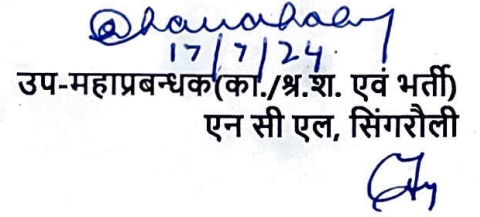 17/7/24
उप-महाप्रबन्धक(का./श्र.श. एवं भर्ती)
एन सी एल, सिंगरौली